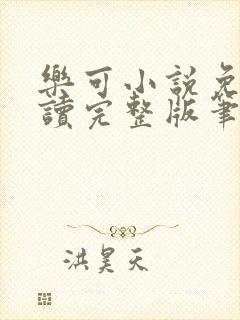 樂可小說免
讀完整版筆
洪昊天